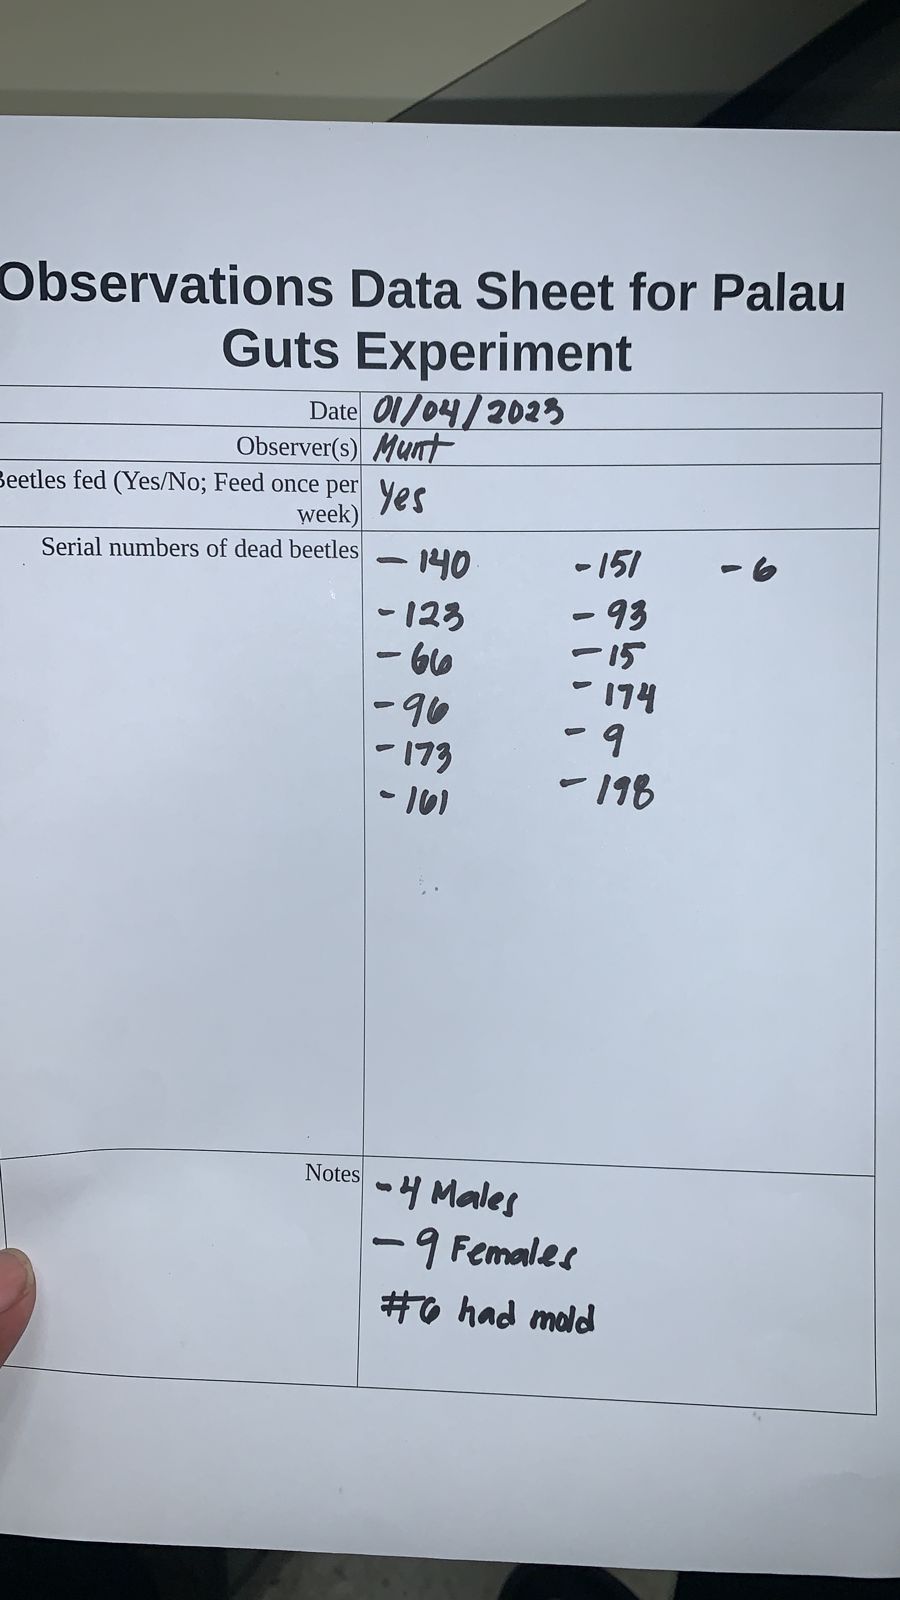 Observations Data Sheet for Palau
Guts Experiment
Date 01/04/2023
Observer(s) Munt
Beetles fed (Yes/No; Feed once per
week) Yes
Serial numbers of dead beetles
- 140
- 123
- 66
- 96
- 173
- 161
- 151
- 93
- 15
- 174
- 9
- 198
- 6
Notes
- 4 Males
- 9 Females
#6 had mold